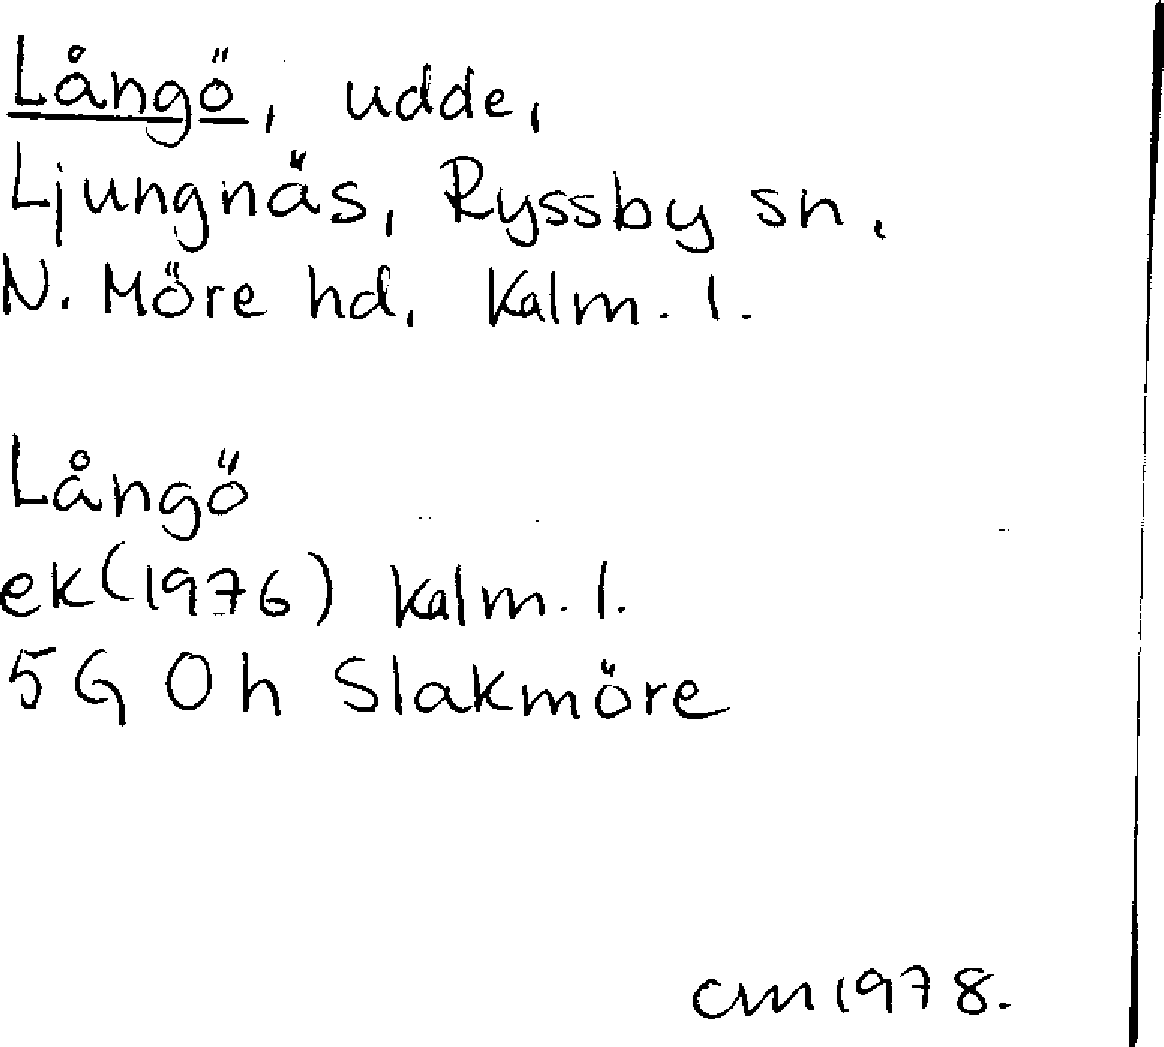 Långö, udde,
Ljungnäs, Ryssby sn.
N. Möre hd. Kalm. l.
Långö
ek(1976) Kalm. l.
5G Oh Slakmöre
cm 1978.